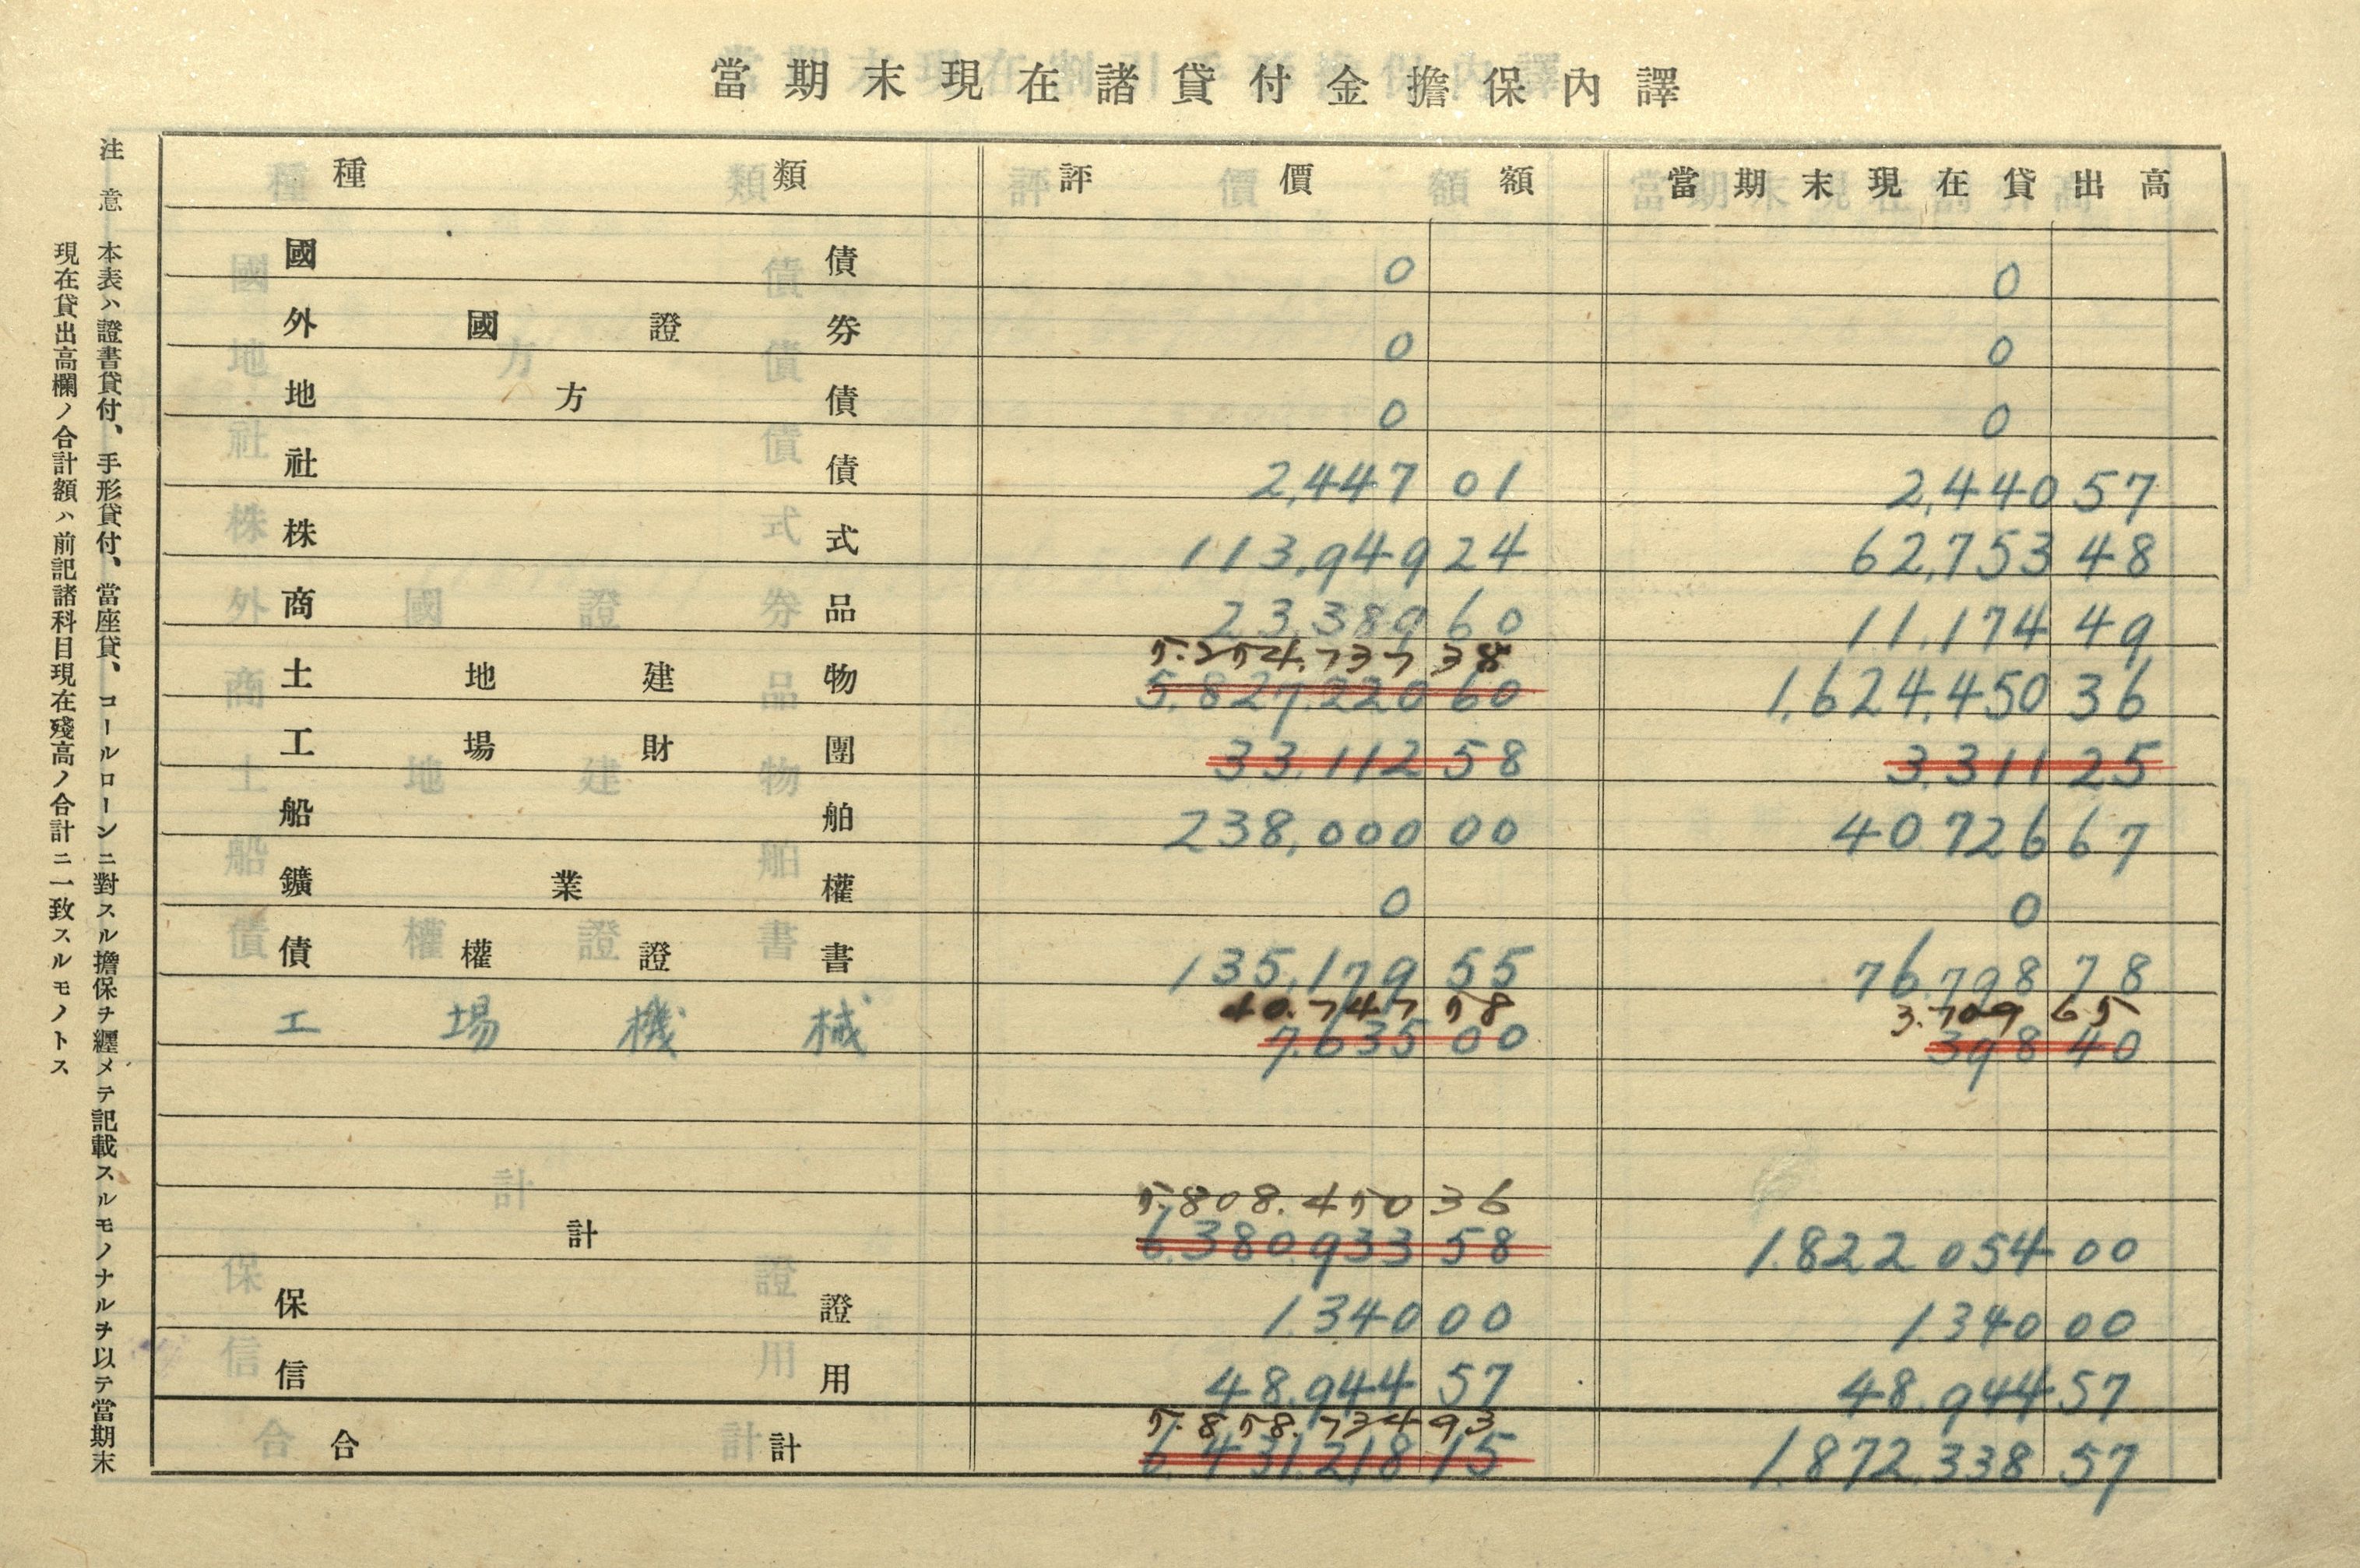 當期末現在諸貸付金擔保內譯
種類 評價額 當期末現在貸出高
國債 0 0
外國證券 0 0
地方債 0 0
社債 2,447 01 2,440 57
株式 113,949 24 62,753 48
商品 23,389 60 11,174 49
5.254.737 38
土地建物 5.827.220 60 1,624,450 36
工場財團 33.112 58 3,311 25
船舶 238,000 00 40.726 67
鑛業權 0 0
債權證書 135,179 55 76.798 78
40.747 58 3.709 65
工場機械 7.635 00 398 40
5.808.450 36
計 6.380.933 58 1.822 054 00
保證 1.340 00 1.340 00
信用 48.944 57 48.944 57
5.858.734 93
合計 6.431.218 15 1.872.338 57
注意 本表ハ證書貸付、手形貸付、當座貸、コールローンニ對スル擔保ヲ纒メテ記載スルモノナルヲ以テ當期末
現在貸出高欄ノ合計額ハ前記諸科目現在殘高ノ合計ニ一致スルモノトス